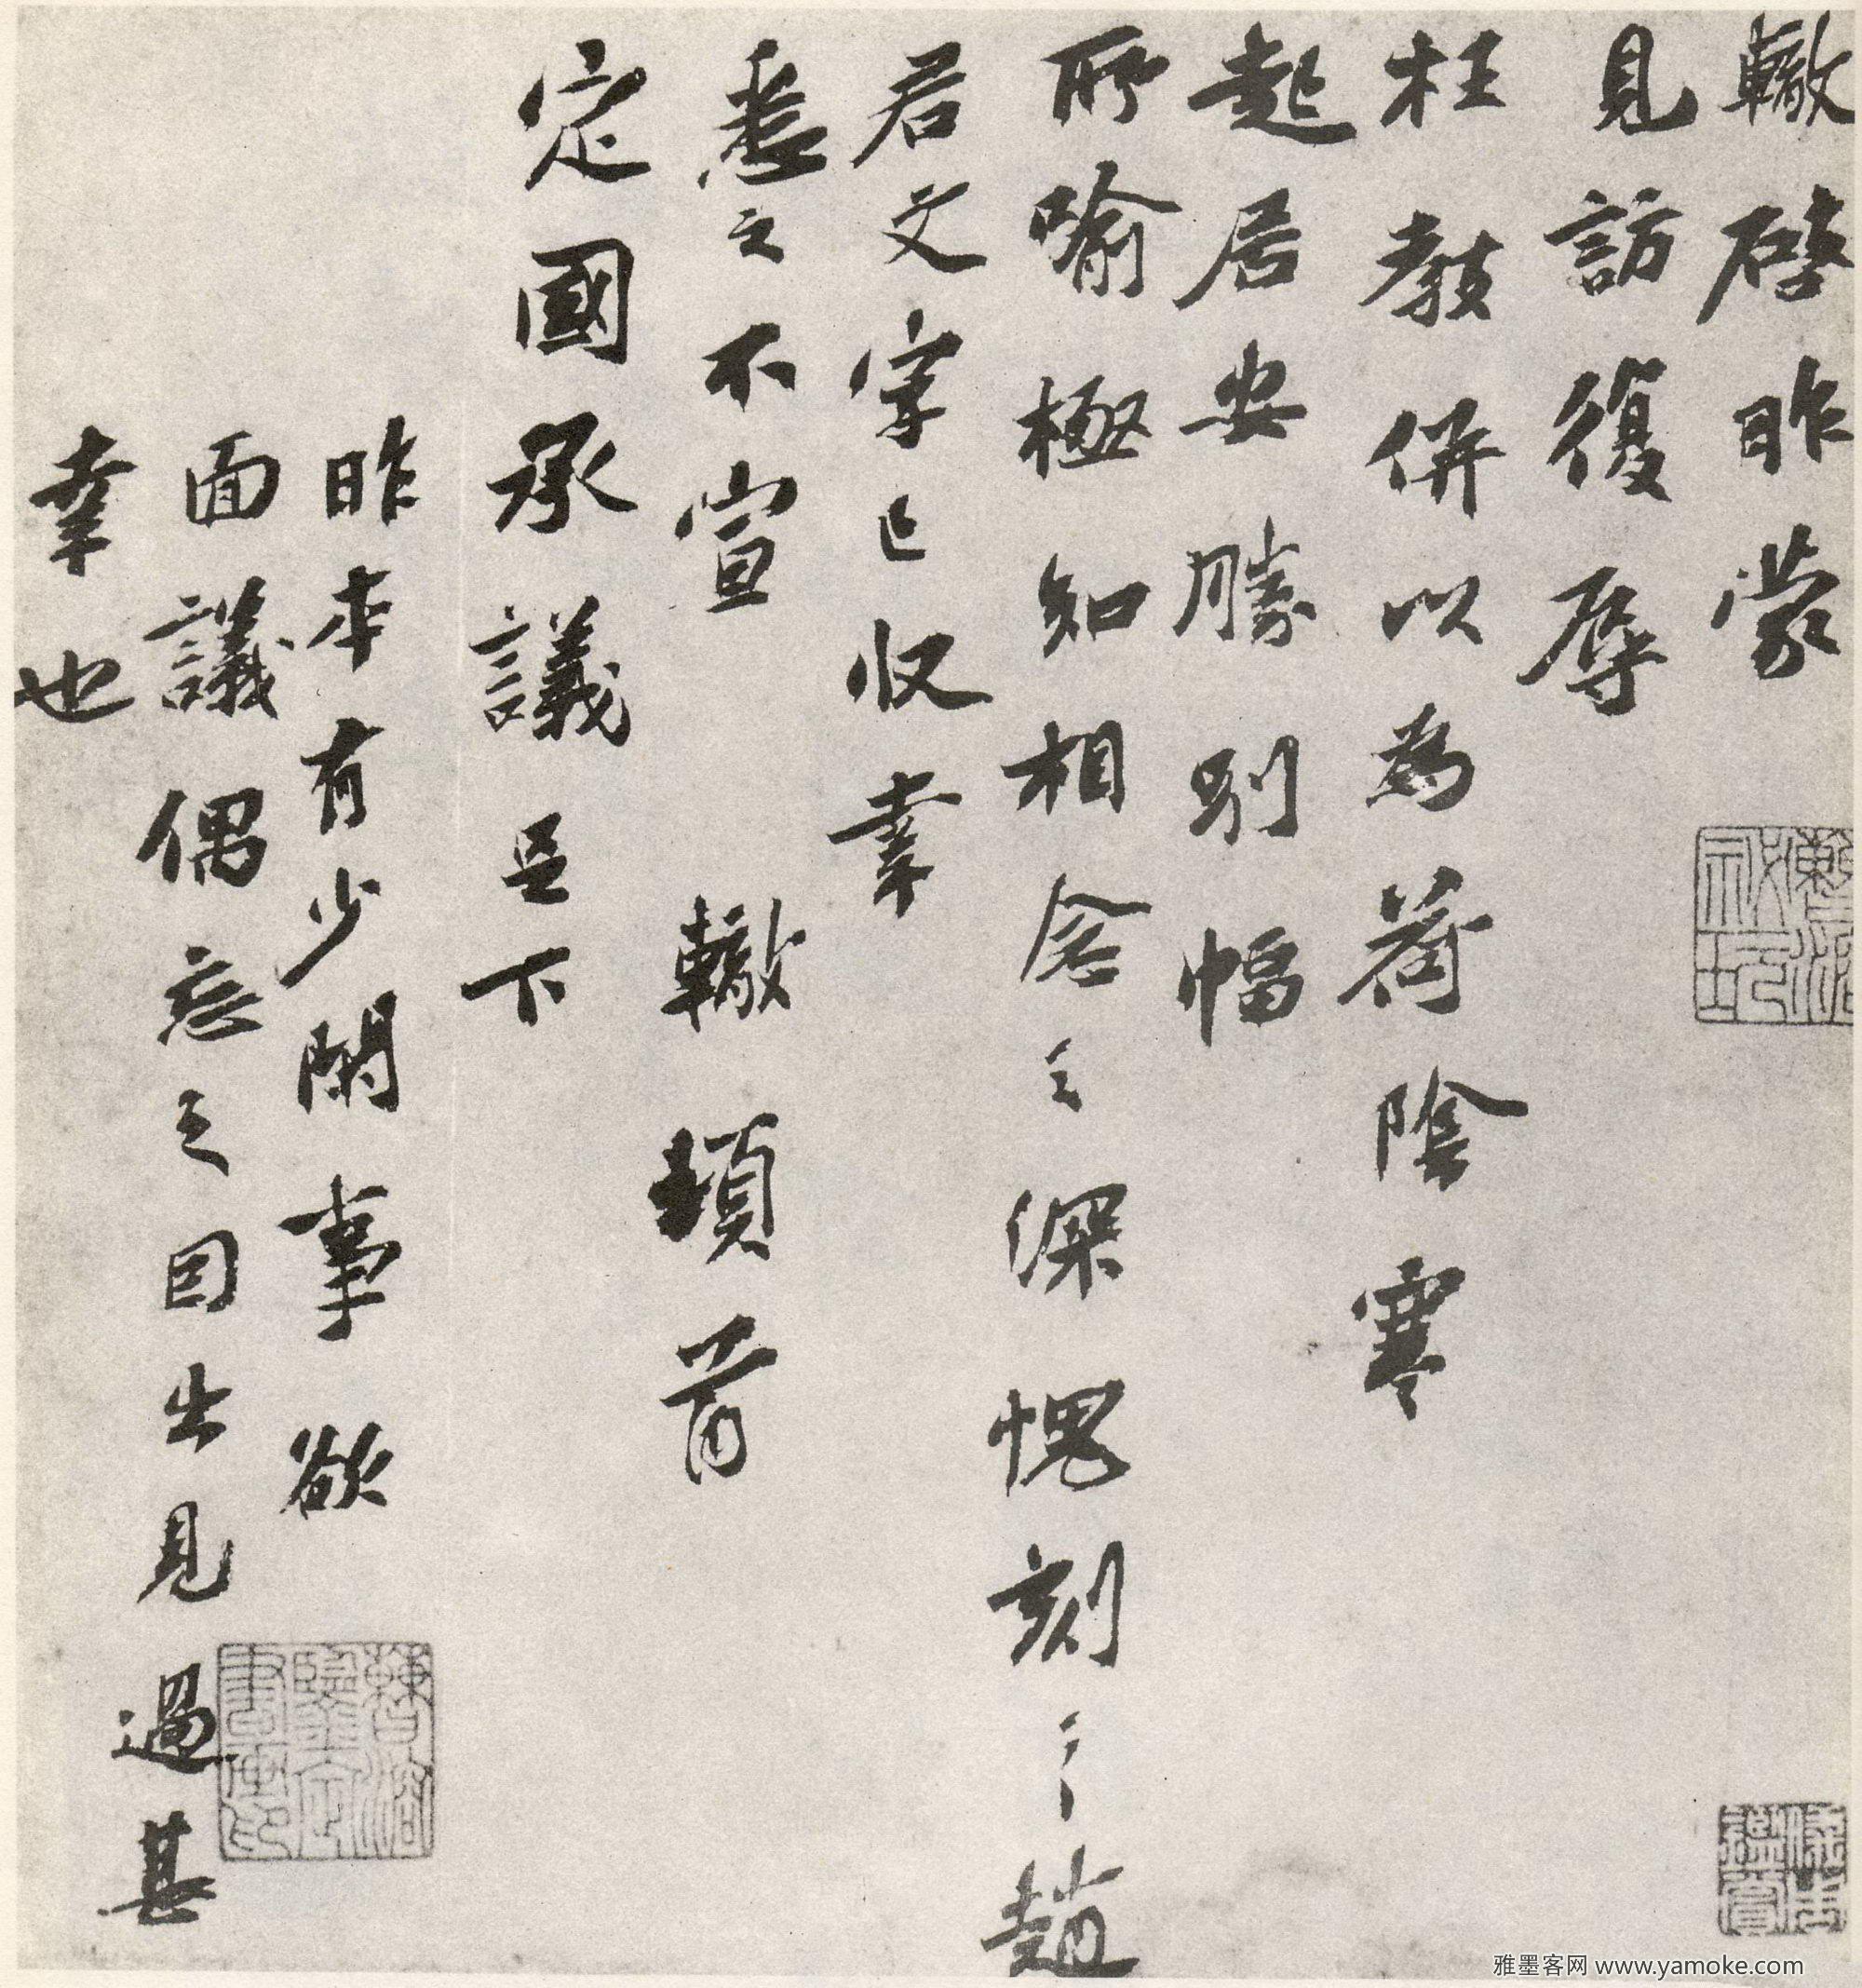 轍啓昨蒙
見訪復辱
枉教併以為荷陰寒
起居安勝別幅
所喻極知相念之深愧刻〻趙
君文字已收幸
悉之不宣 轍頓首
定國承議足下
昨本有少閑事欲
面議偶忘之因出見過甚
幸也
雅墨客网 www.yamoke.com